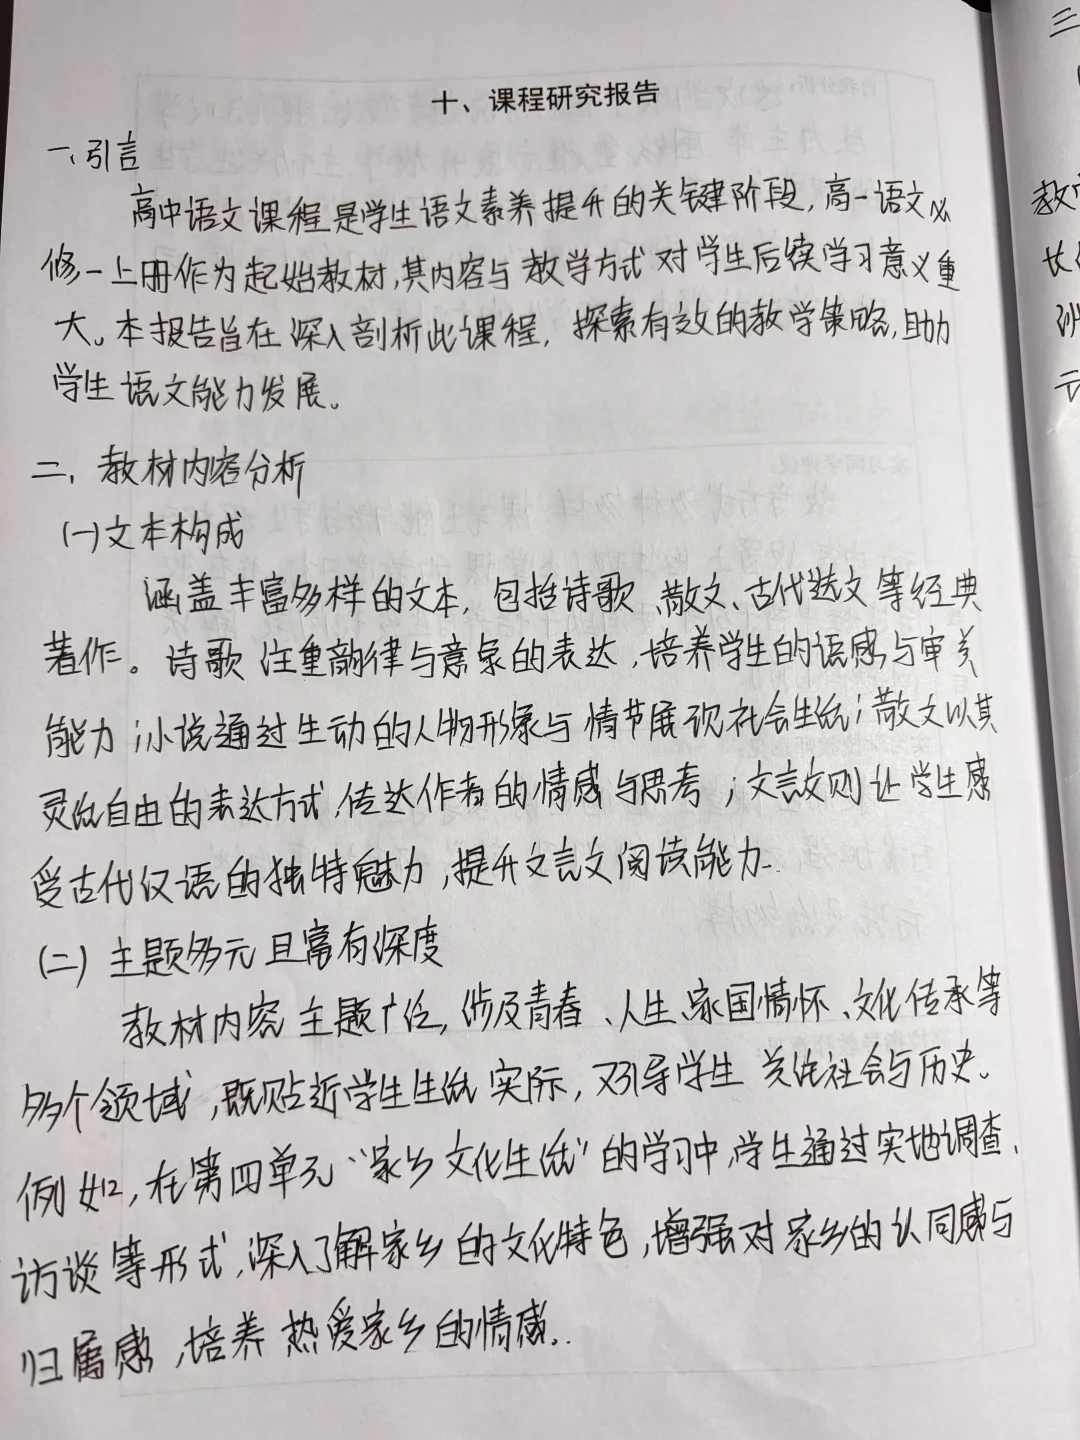 十、课程研究报告
一、引言
高中语文课程是学生语文素养提升的关键阶段,高一语文必
修一上册作为起始教材,其内容与教学方式对学生后续学习意义重
大。本报告旨在深入剖析此课程,探索有效的教学策略,助力
学生语文能力发展。
二、教材内容分析
(一)文本构成
涵盖丰富多样的文本,包括诗歌、散文、古代选文等经典
著作。诗歌注重韵律与意象的表达,培养学生的语感与审美
能力;小说通过生动的人物形象与情节展现社会生活;散文以其
灵活自由的表达方式,传达作者的情感与思考;文言文则让学生感
受古代汉语的独特魅力,提升文言文阅读能力.
(二)主题多元且富有深度
教材内容主题广泛,涉及青春、人生、家国情怀、文化传承等
多个领域,既贴近学生生活实际,又引导学生关注社会与历史。
例如,在第四单元“家乡文化生活”的学习中,学生通过实地调查、
访谈等形式,深入了解家乡的文化特色,增强对家乡的认同感与
归属感,培养热爱家乡的情感。
三
教